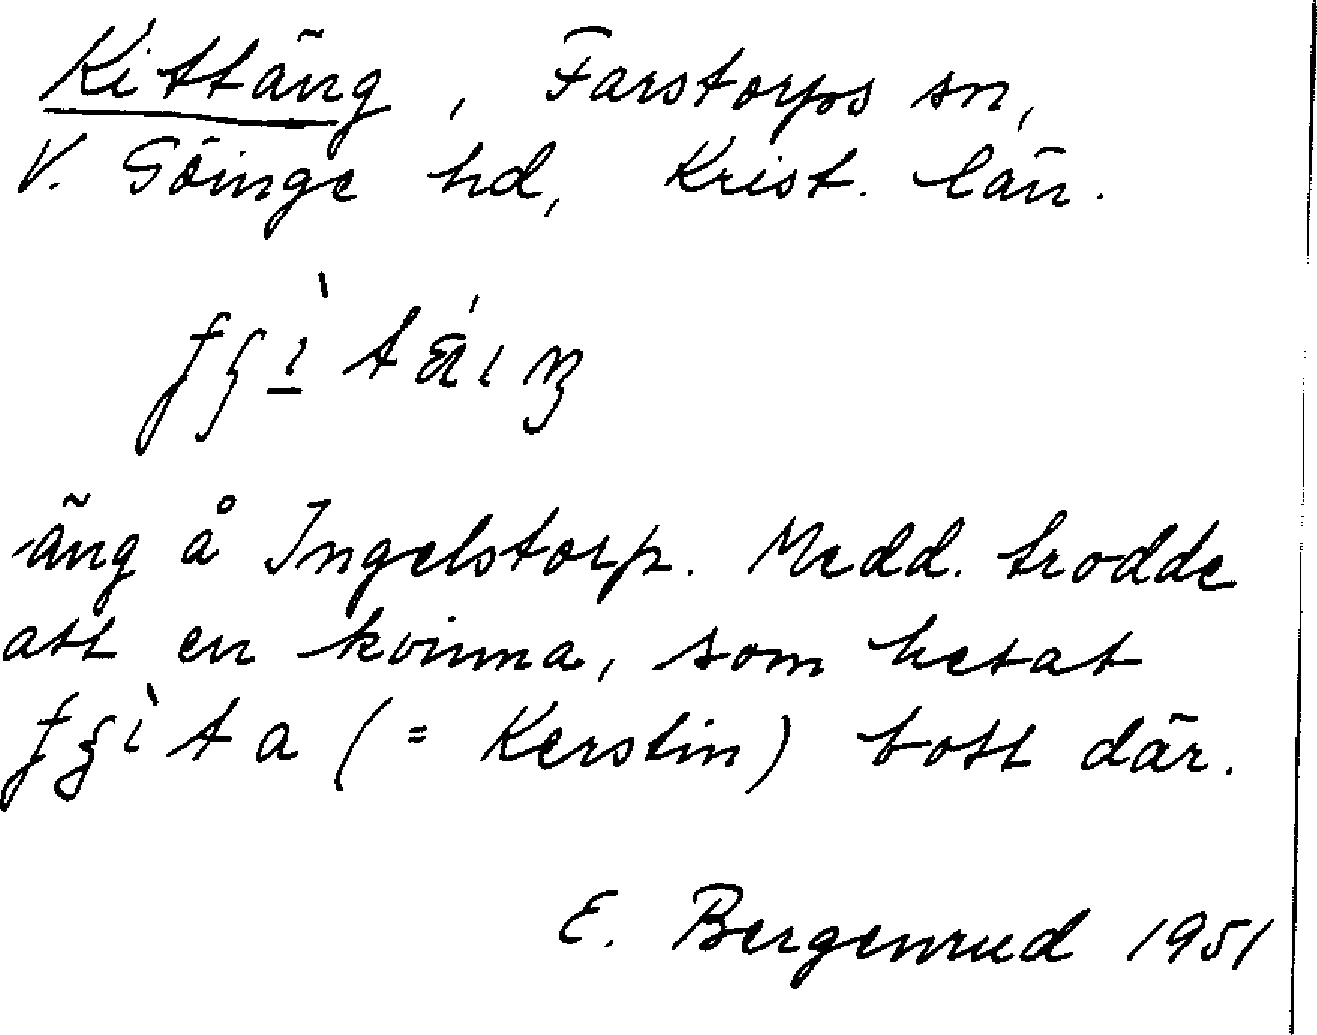 Kittäng, Farstorps sn,
V. Göinge hd, Krist. län.
äng å Ingelstorp. Medd. trodde
att en kvinna, som hetat
(= Kerstin) bott där.
E. Bergenrud 1951